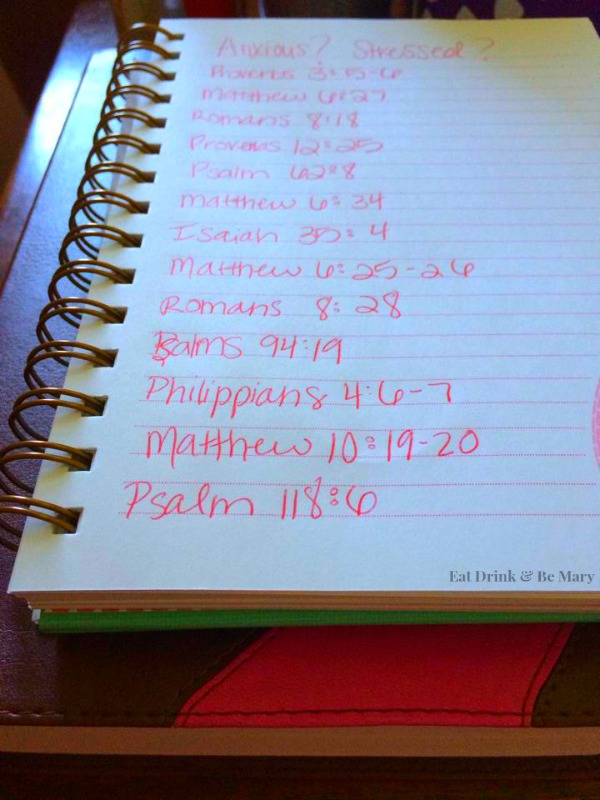 Anxious? Stressed?
Proverbs 3:5-6
Matthew 6:27
Romans 8:18
Proverbs 12:25
Psalm 62:8
Matthew 6:34
Isaiah 35:4
Matthew 6:25-26
Romans 8:28
Psalms 94:19
Philippians 4:6-7
Matthew 10:19-20
Psalm 118:6
Eat Drink & Be Mary